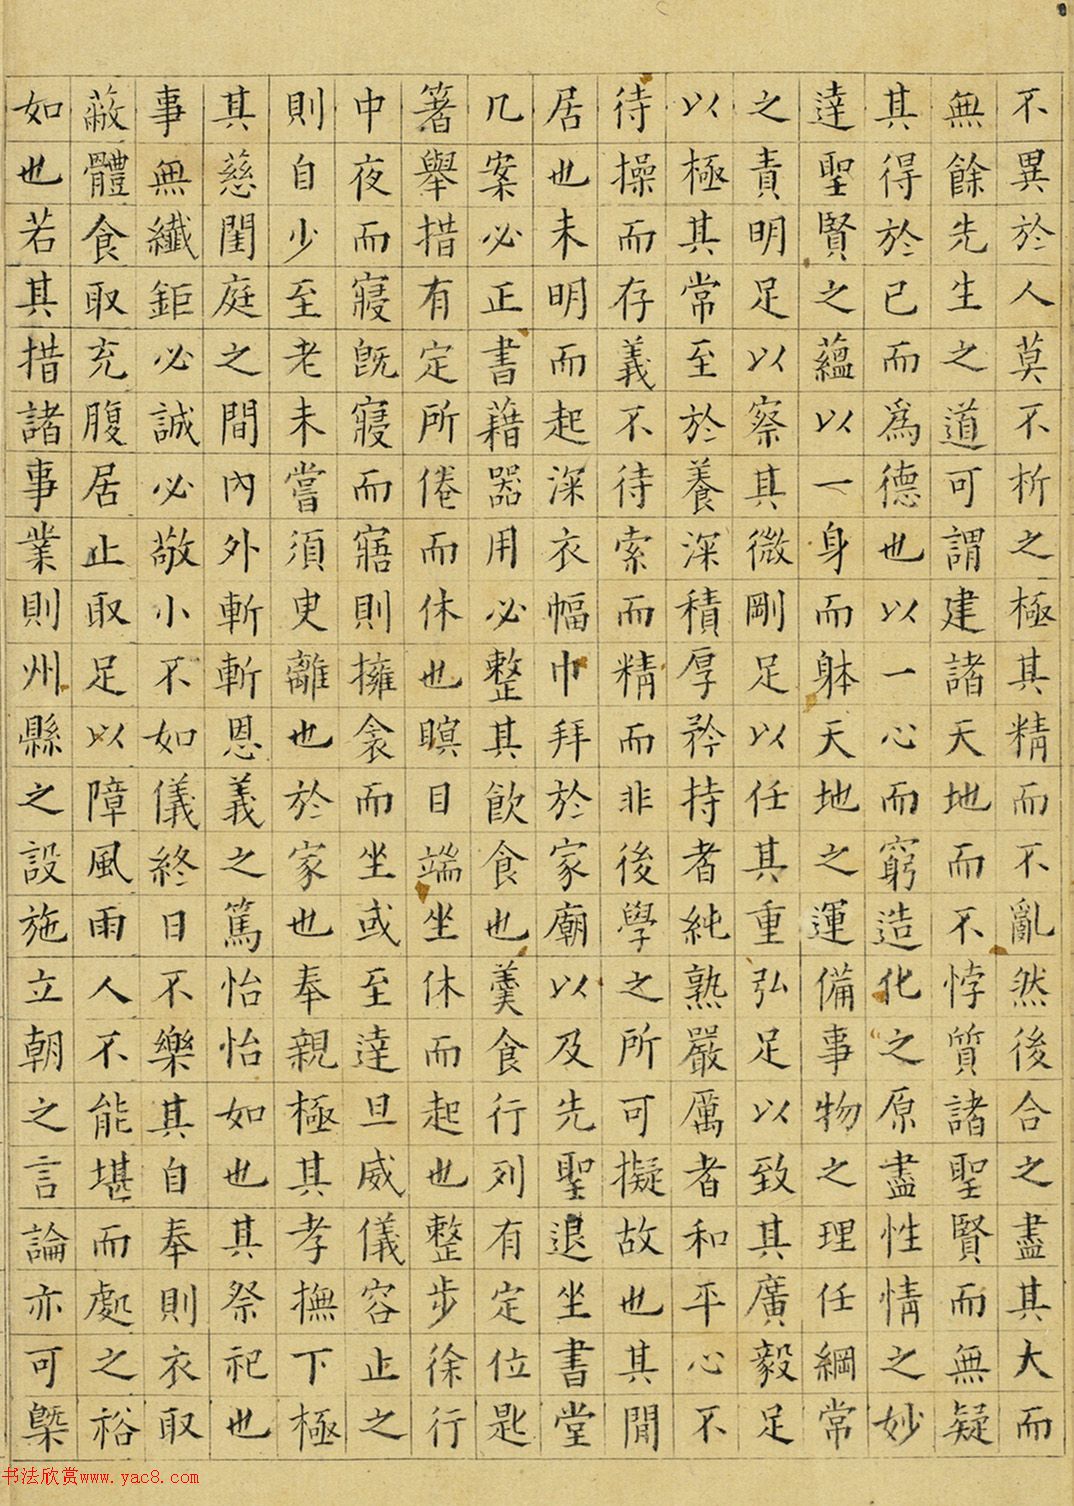 不異於人莫不析之極其精而不亂然後合之盡其大而
無餘先生之道可謂建諸天地而不悖質諸聖賢而無疑
其得於己而為德也以一心而窮造化之原盡性情之妙
達聖賢之蘊以一身而躰天地之運備事物之理任綱常
之責明足以察其微剛足以任其重弘足以致其廣毅足
以極其常至於養深積厚矜持者純熟嚴厲者和平心不
待操而存義不待索而精而非後學之所可擬故也其閒
居也未明而起深衣幅巾拜於家廟以及先聖退坐書堂
几案必正書藉器用必整其飲食也羹食行列有定位匙
箸舉措有定所倦而休也瞑目端坐休而起也整步徐行
中夜而寢既寢而寤則擁衾而坐或至達旦威儀容止之
則自少至老未嘗須臾離也於家也奉親極其孝撫下極
其慈閨庭之間內外斬斬恩義之篤怡怡如也其祭祀也
事無纖鉅必誠必敬小不如儀終日不樂其自奉則衣取
蔽體食取充腹居止取足以障風雨人不能堪而處之裕
如也若其措諸事業則州縣之設施立朝之言論亦可槩
书法欣赏www.yac8.com